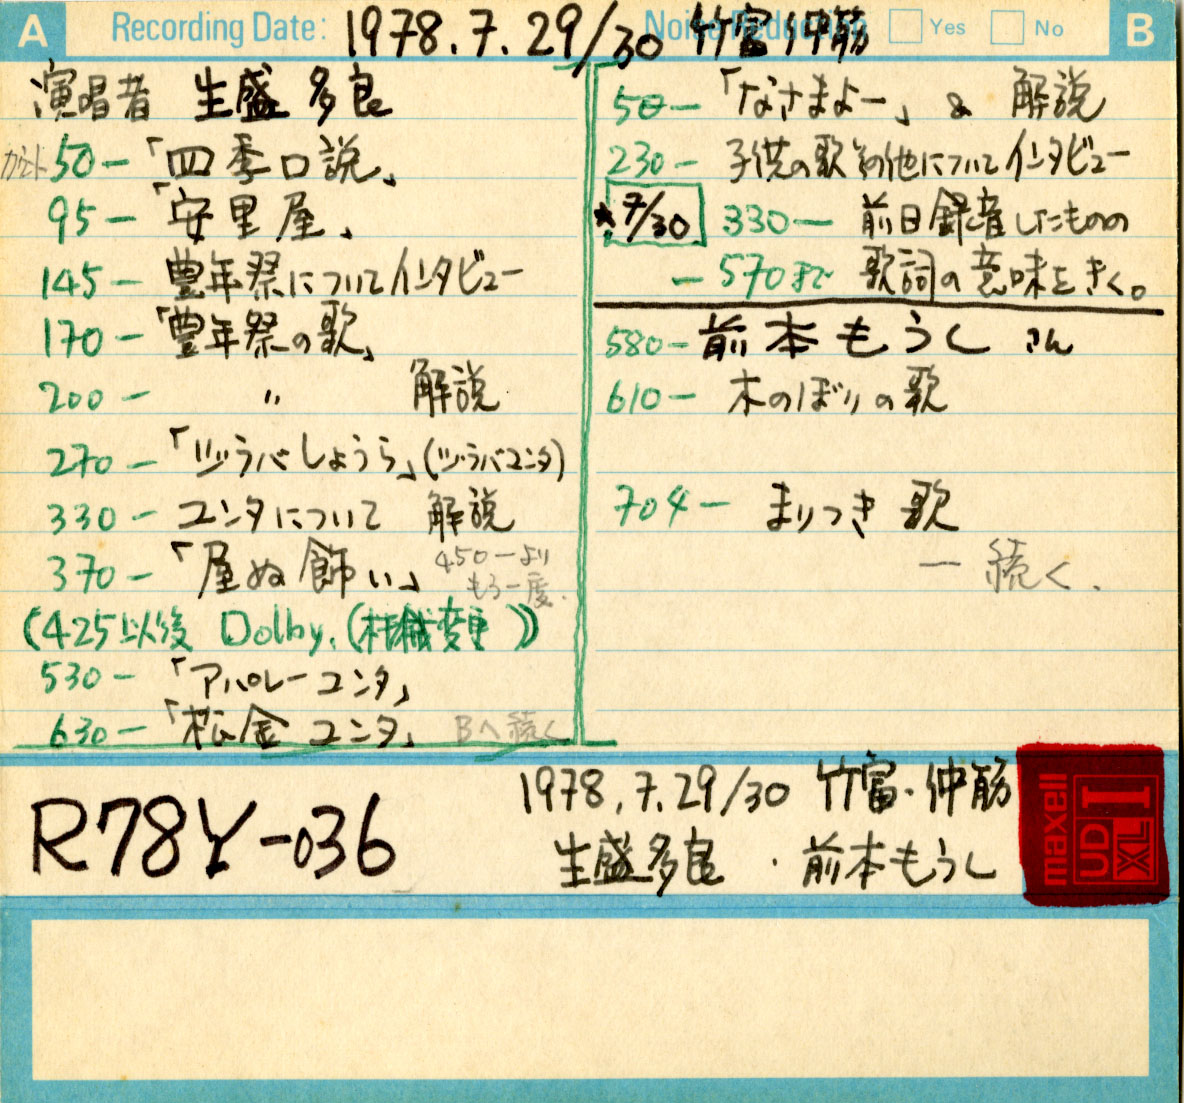 A Recording Date: 1978.7.29/30 竹富 仲筋 Noise Reduction Yes No B
演唱者 生盛 多良
カウント 50-「四季口説」
95-「安里屋」
145- 豊年祭についてインタビュー
170-「豊年祭の歌」
200- 〃 解説
270-「ヅラバしょうら」(ヅラバユンタ)
330- ユンタについて 解説
370-「屋ぬ飾い」 450-より もう一度.
(425以後 Dolby. (機械変更))
530-「アパレーユンタ」
630-「松金ユンタ」 Bへ続く
50-「なさまよー」& 解説
230- 子供の歌その他についてインタビュー
*7/30 330- 前日録音したものの
-570まで 歌詞の意味をきく。
580- 前本もうし さん
610- 木のぼりの歌
704- まりつき歌
- 続く.
R78Y-036
1978.7.29/30 竹富・仲筋
生盛多良 ・ 前本もうし
maxell
UD XL I